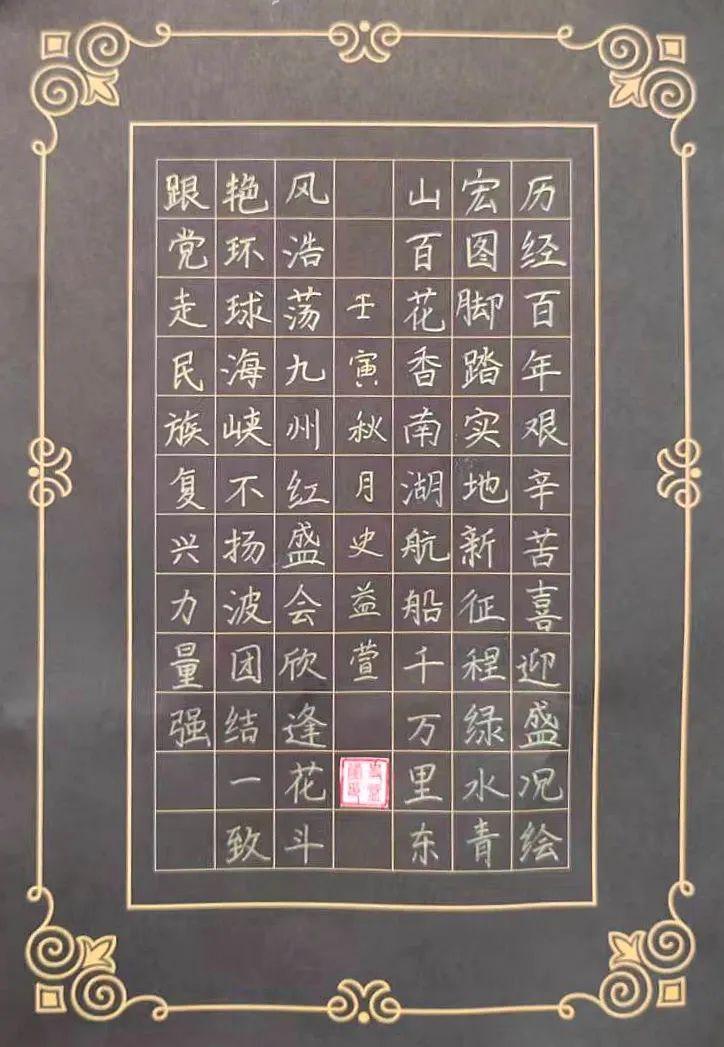 历经百年艰辛苦喜迎盛况绘
宏图脚踏实地新征程绿水青
山百花香南湖航船千万里东
壬寅秋月史益萱
风浩荡九州红盛会欣逢花斗
艳环球海峡不扬波团结一致
跟党走民族复兴力量强